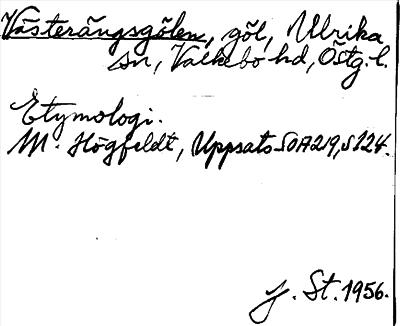 Västerängsgölen, göl, Ulrika
sn, Valkebo hd, Östg. l.
Etymologi.
M. Högfeldt, Uppsats SOA219, s 124.
J. St. 1956.